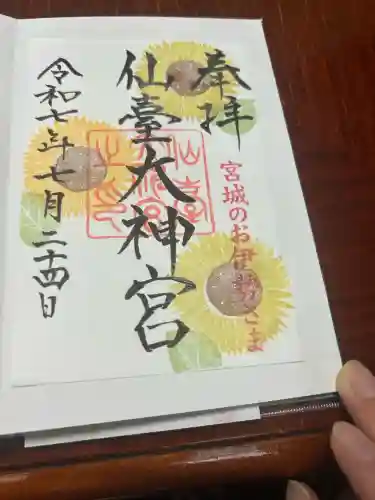 奉拝
宮城のお伊勢さま
仙臺大神宮
令和七年七月二十四日